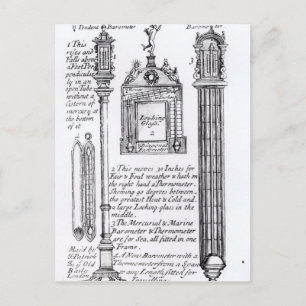 Pendent Barometer
Barometer
1 This
rises and
Falls above
a Foot Per
pendicular
ly in an
open Tube
without a
Cistern of
mercury at
the bottom
of it
Looking
Glass.
2
3
2 This moves 30 Inches for
Fair & Foul weather & hath on
the right hand a Thermometer
Showing 90 degrees between
the greatest Heat & Cold and
a large Looking-glass in the
middle.
3 The Mercurial & Marine
Barometer & Thermometer
are for Sea, all fitted in one
Frame.
4 A New Barometer with a
Thermometer from a Span
to any Length fitted for
Made by
Patrick
Old
London